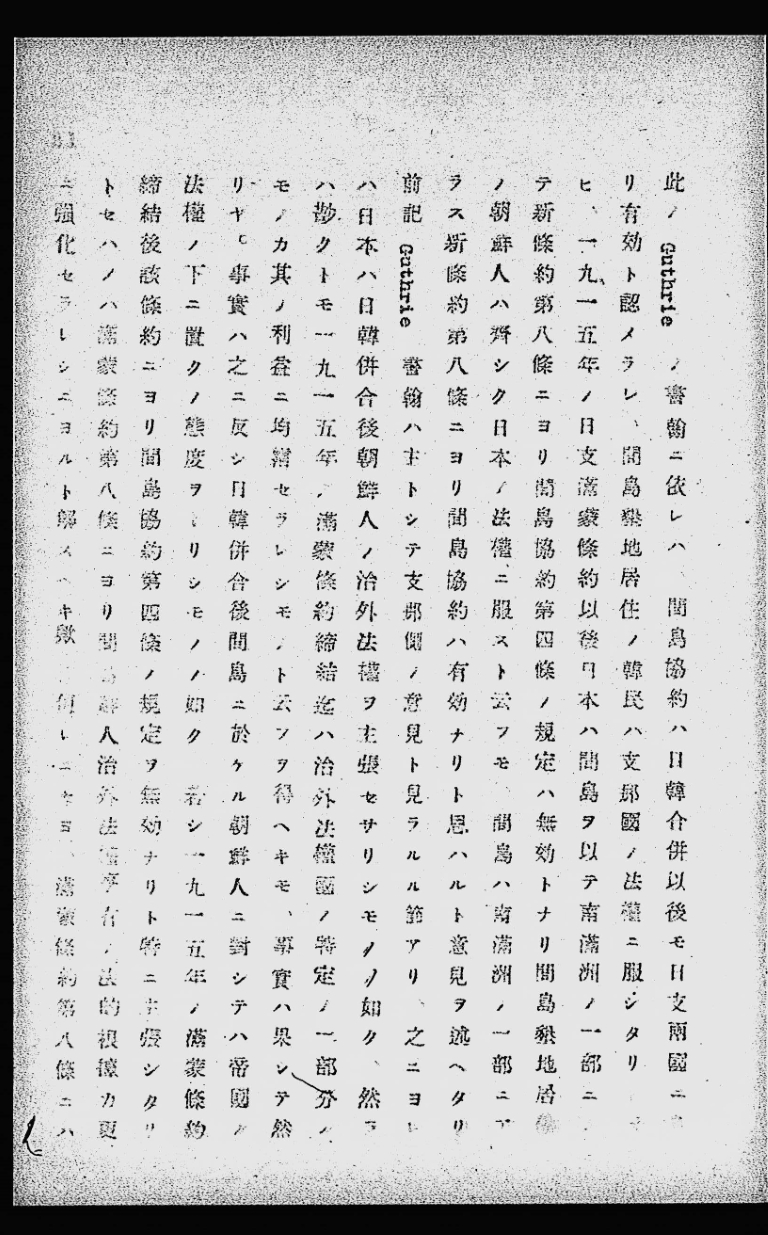 此ノ Guthrie ノ書翰ニ依レハ 間島協約ハ日韓合併以後モ日支兩國ニ
リ有効ト認メラレ、間島墾地居住ノ韓民ハ支那國ノ法權ニ服シタリ
ヒ、一九一五年ノ日支滿蒙條約以後日本ハ間島ヲ以テ南滿洲ノ一部ニ
テ新條約第八條ニヨリ間島協約第四條ノ規定ハ無効トナリ間島墾地居
ノ朝鮮人ハ齊シク日本ノ法權ニ服スト云フモ 間島ハ南滿洲ノ一部ニア
ラス新條約第八條ニヨリ間島協約ハ有効ナリト思ハルト意見ヲ述ヘタリ
前記 Guthrie 書翰ハ主トシテ支那側ノ意見ト見ラルル節アリ、之ニヨレ
ハ日本ハ日韓併合後朝鮮人ノ治外法權ヲ主張セサリシモノノ如ク、然ラ
ハ尠クトモ一九一五年ノ滿蒙條約締結迄ハ治外法權國ノ特定ノ一部分ノ
モノカ其ノ利益ニ均霑セラレシモノト云フヲ得ヘキモ、事實ハ果シテ然
リヤ。事實ハ之ニ反シ日韓併合後間島ニ於ケル朝鮮人ニ對シテハ帝國ノ
法權ノ下ニ置クノ態度ヲトリシモノノ如ク 若シ一九一五年ノ滿蒙條約
締結後該條約ニヨリ間島協約第四條ノ規定ヲ無効ナリト特ニ主張シタリ
トセハノハ滿蒙條約第八條ニヨリ間島鮮人治外法權享有ノ法的根據カ更
ニ強化セラレシニヨルト解スヘキ歟 何レニセヨ、滿蒙條約第八條ニハ